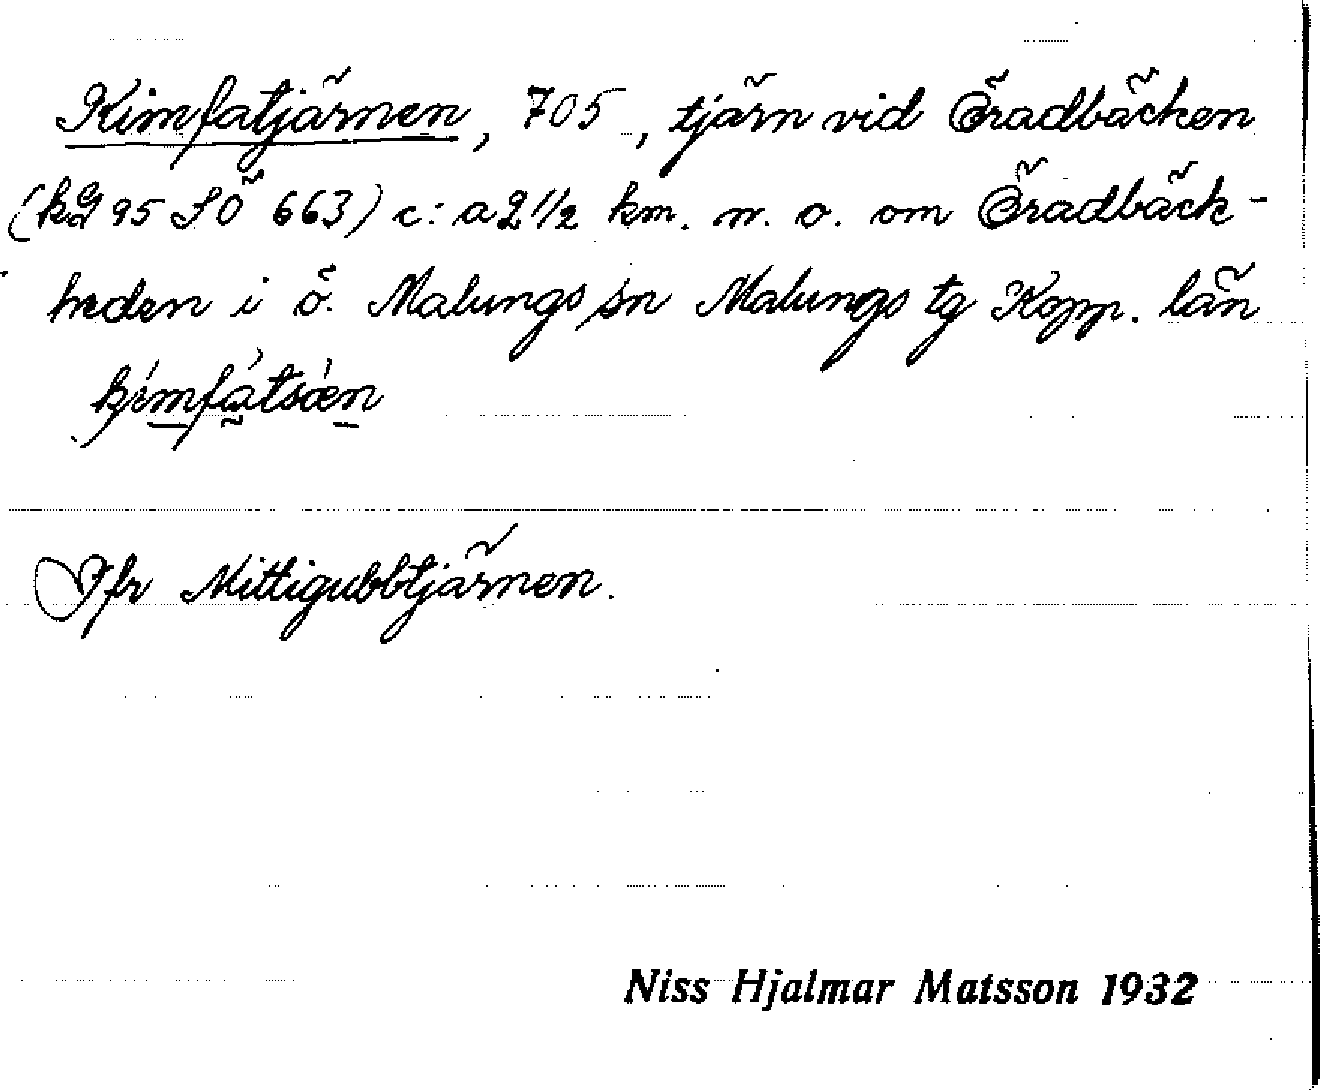 Kimfatjärnen, 705, tjärn vid Öradbäcken
(kg 95 SÖ 663) c:a 2 1/2 km. n. o. om Öradbäck-
heden i ö. Malungs sn Malungs tg Kopp. län
Jfr Mittigubbtjärnen.
Niss Hjalmar Matsson 1932